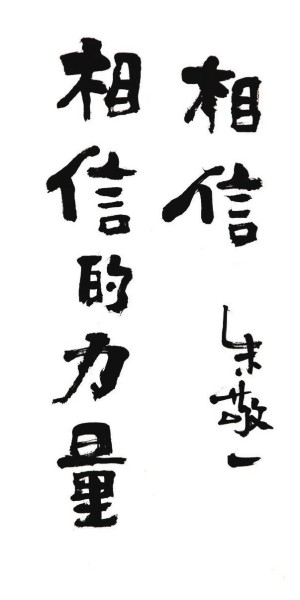 相信
相信的力量
朱敬一